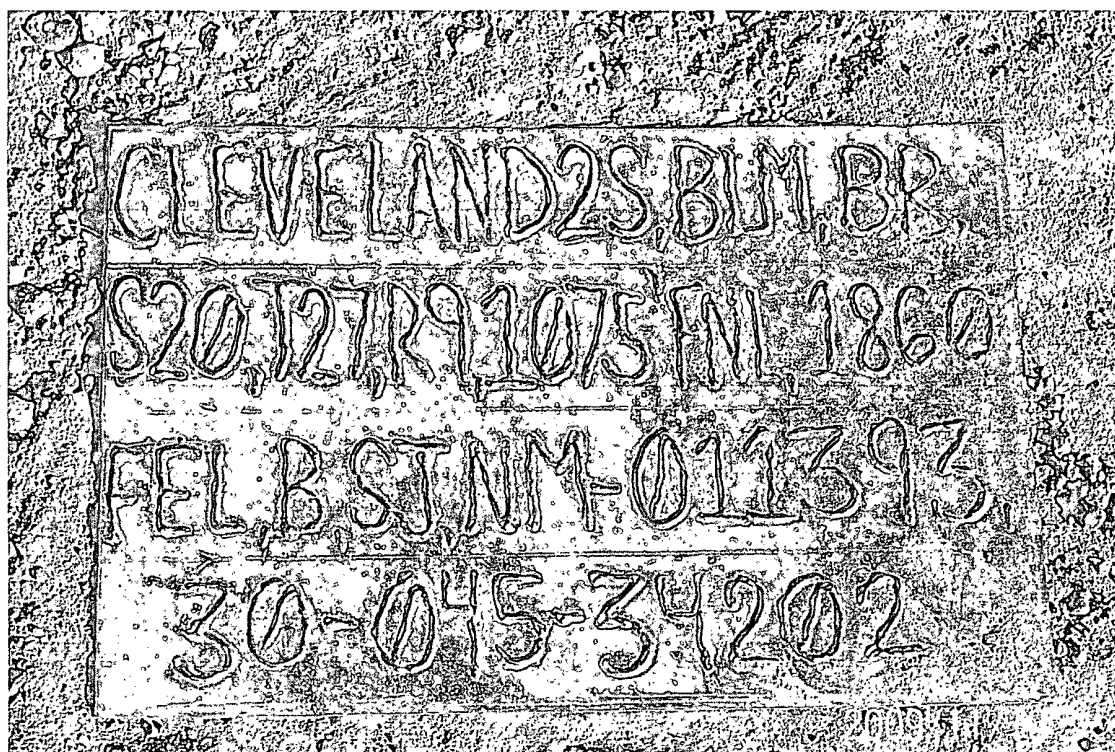 CLEVELAND 2S, BLM, BR,
S20, T27, R9, 1075' FNL, 1860
FEL, B SJ, NM-011393,
30-045-34202